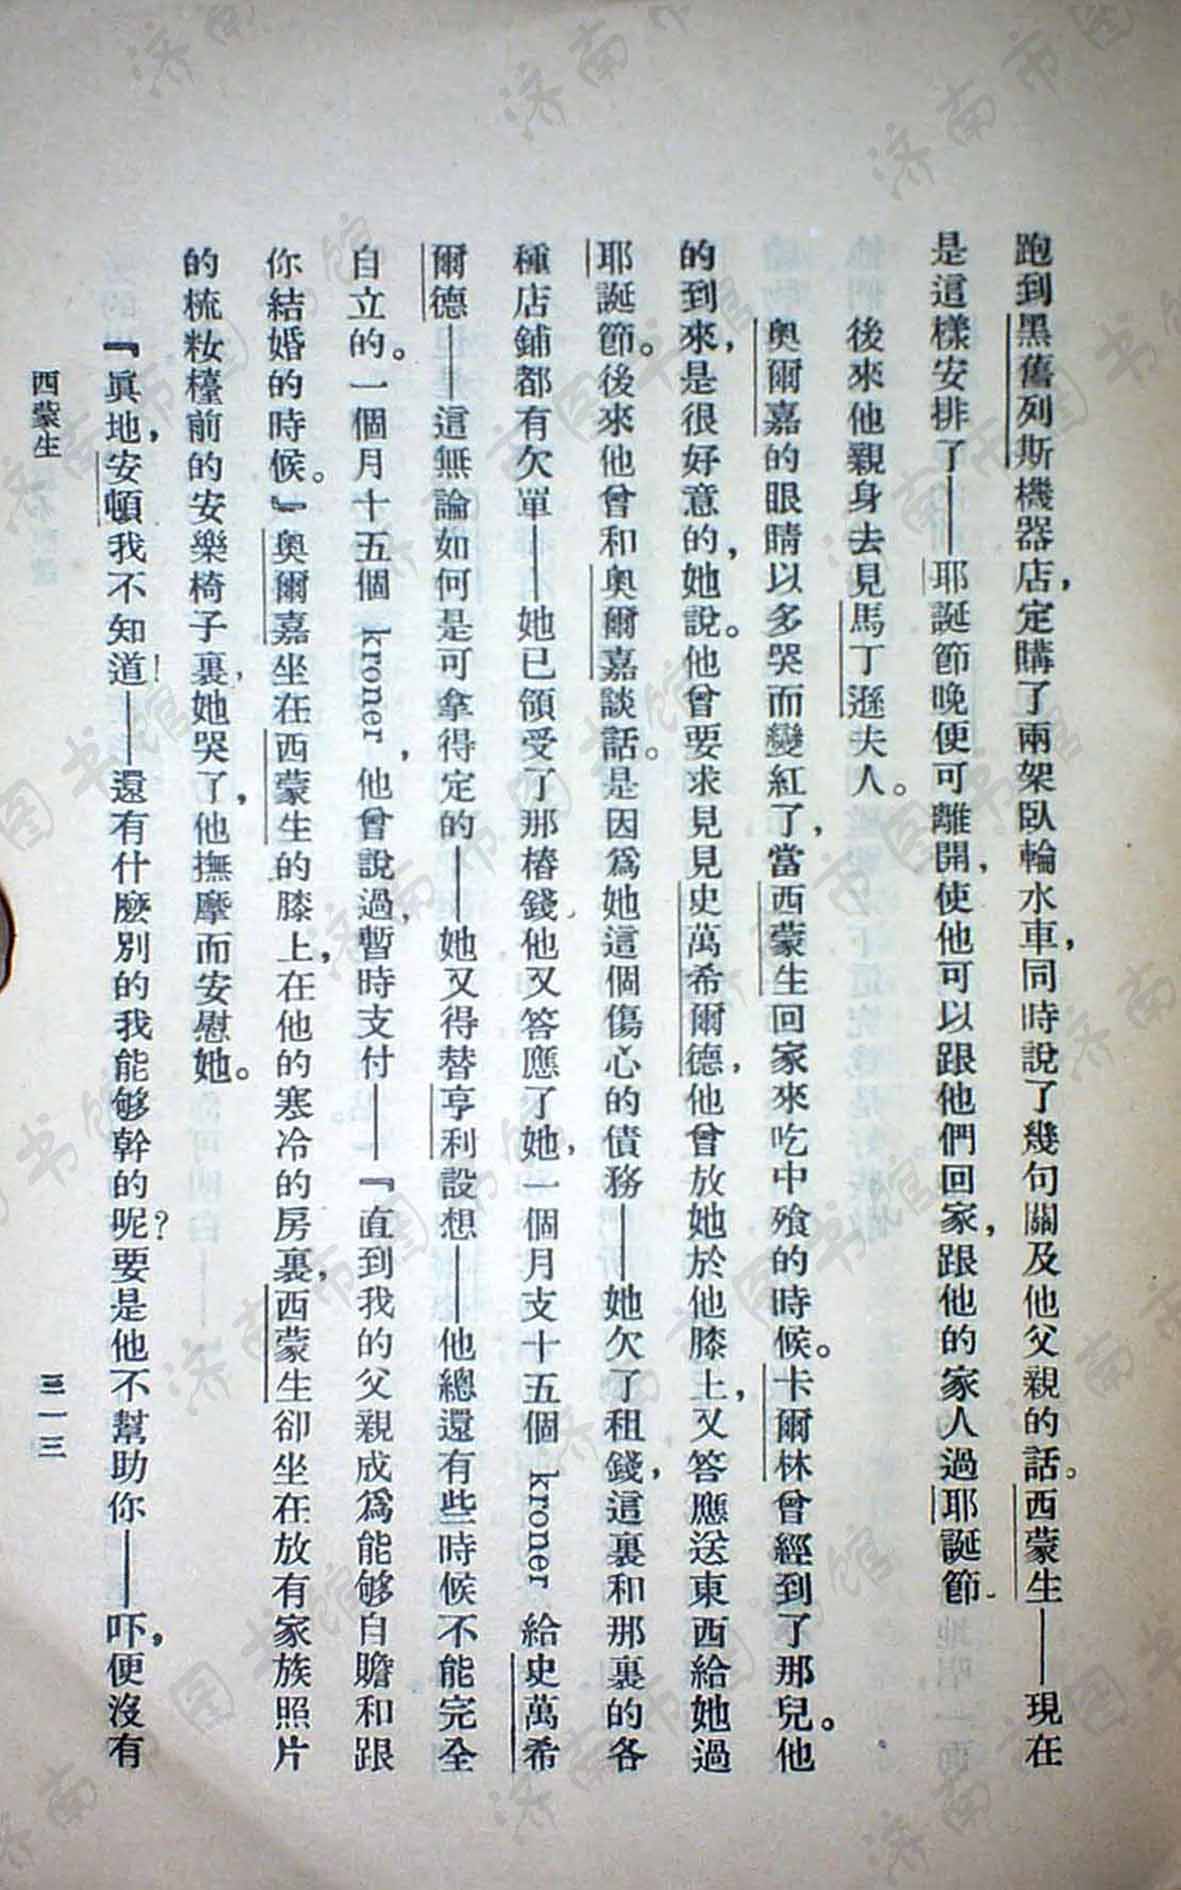 跑到黑舊列斯機器店，定購了兩架臥輪水車，同時說了幾句關及他父親的話。西蒙生——現在
是這樣安排了——耶誕節晚便可離開，使他可以跟他們回家，跟他的家人過耶誕節。
後來他親身去見馬丁遜夫人。
奧爾嘉的眼睛以多哭而變紅了，當西蒙生回家來吃中飱的時候。卡爾林曾經到了那兒。他
的到來，是很好意的，她說。他曾要求見見史萬希爾德，他曾放她於他膝上，又答應送東西給她過
耶誕節。後來他曾和奧爾嘉談話。是因為她這個傷心的債務——她欠了租錢，這裏和那裏的各
種店鋪都有欠單——她已領受了那樁錢，他又答應了她，一個月支十五個 kroner 給史萬希
爾德——這無論如何是可拿得定的——她又得替亨利設想——他總還有些時候不能完全
自立的。一個月十五個 kroner，他曾說過，暫時支付——『直到我的父親成為能够自贍和跟
你結婚的時候。』奧爾嘉坐在西蒙生的膝上，在他的寒冷的房裏，西蒙生卻坐在放有家族照片
的梳妝檯前的安樂椅子裏，她哭了，他撫摩而安慰她。
『眞地，安頓我不知道！——還有什麼別的我能够幹的呢？要是他不幫助你——吓，便沒有
西蒙生
三一三
济南市图书馆